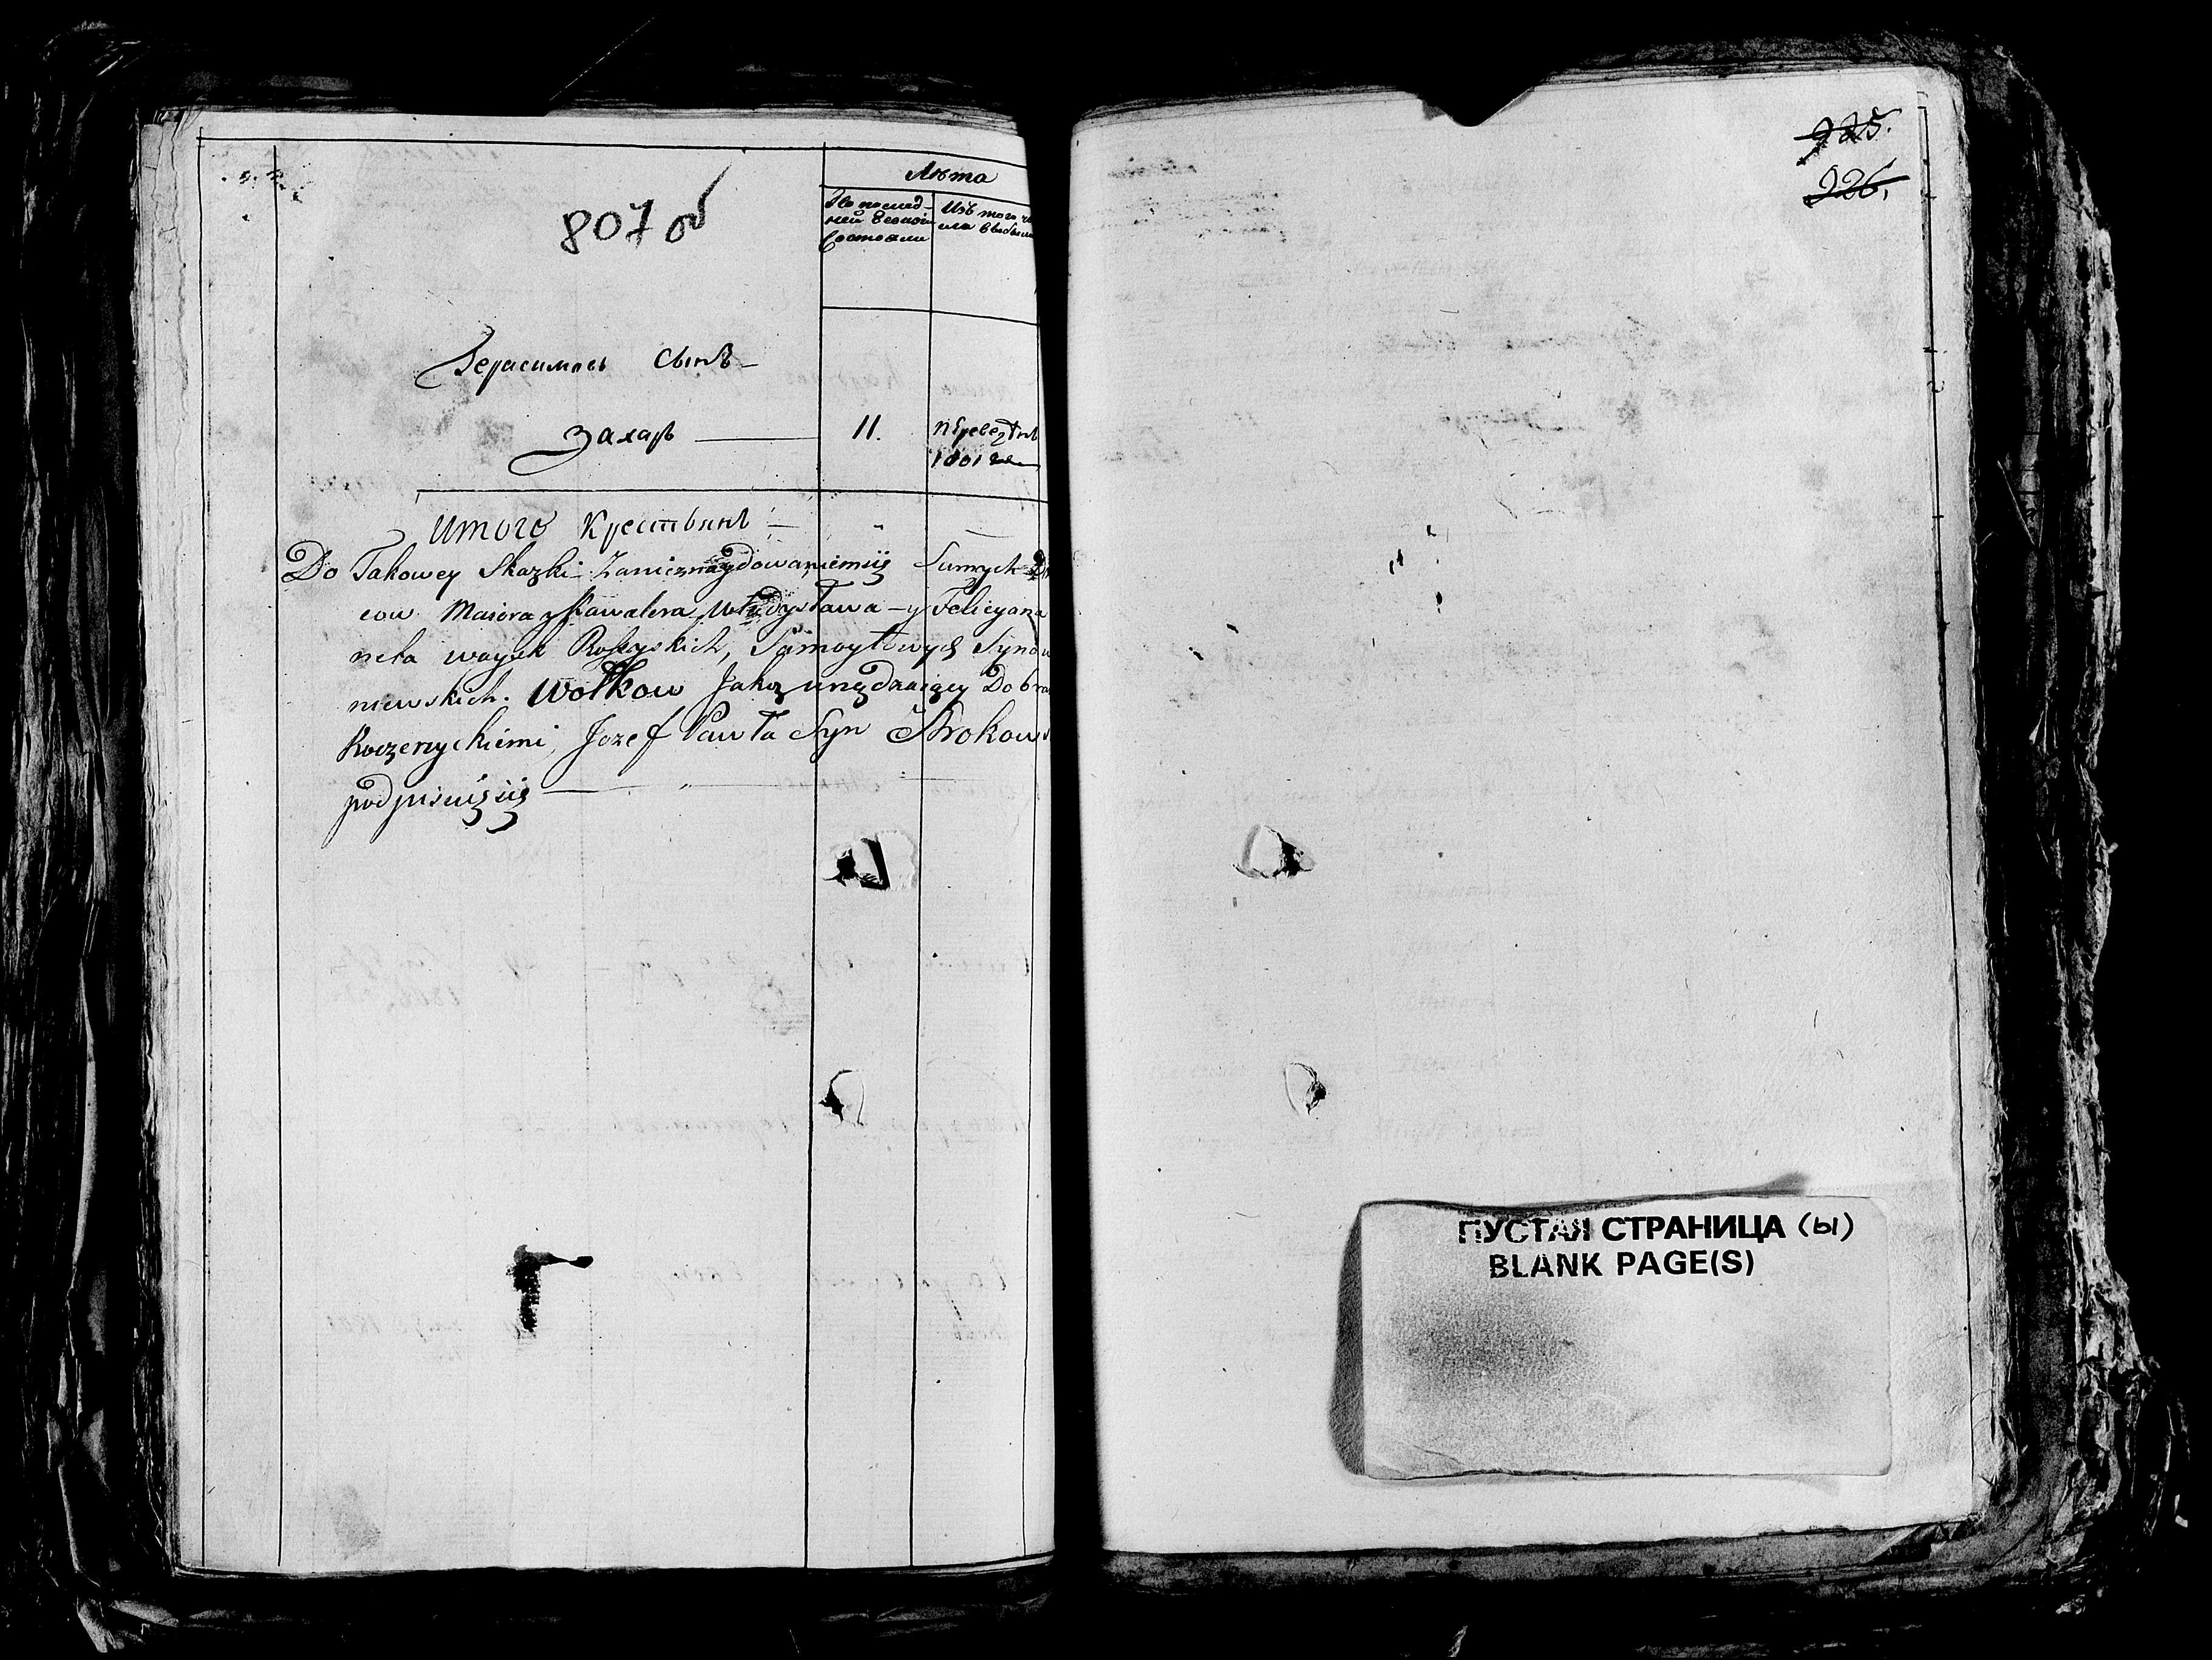 807 об
Лѣта
По послед-
ней Ревизіи
Состояли
Изъ того чи
сла выбыли
Герасимовъ Сынъ
Захаръ 11.
1801
Итого Крестьянъ
Do Takowey Skazki Zanieznaydowaniemsię Samych
cow Maiora y Kawalera Władysława y Felicyana
neta woysk Rossyskich, Samoyłowych Synow
niewskich. Wołkow Jako urzędzaiący Dobra
Koczerzyckiemi, Jozef Pawła Syn
podpisuię się
225.
226.
ПУСТАЯ СТРАНИЦА (Ы)
BLANK PAGE(S)